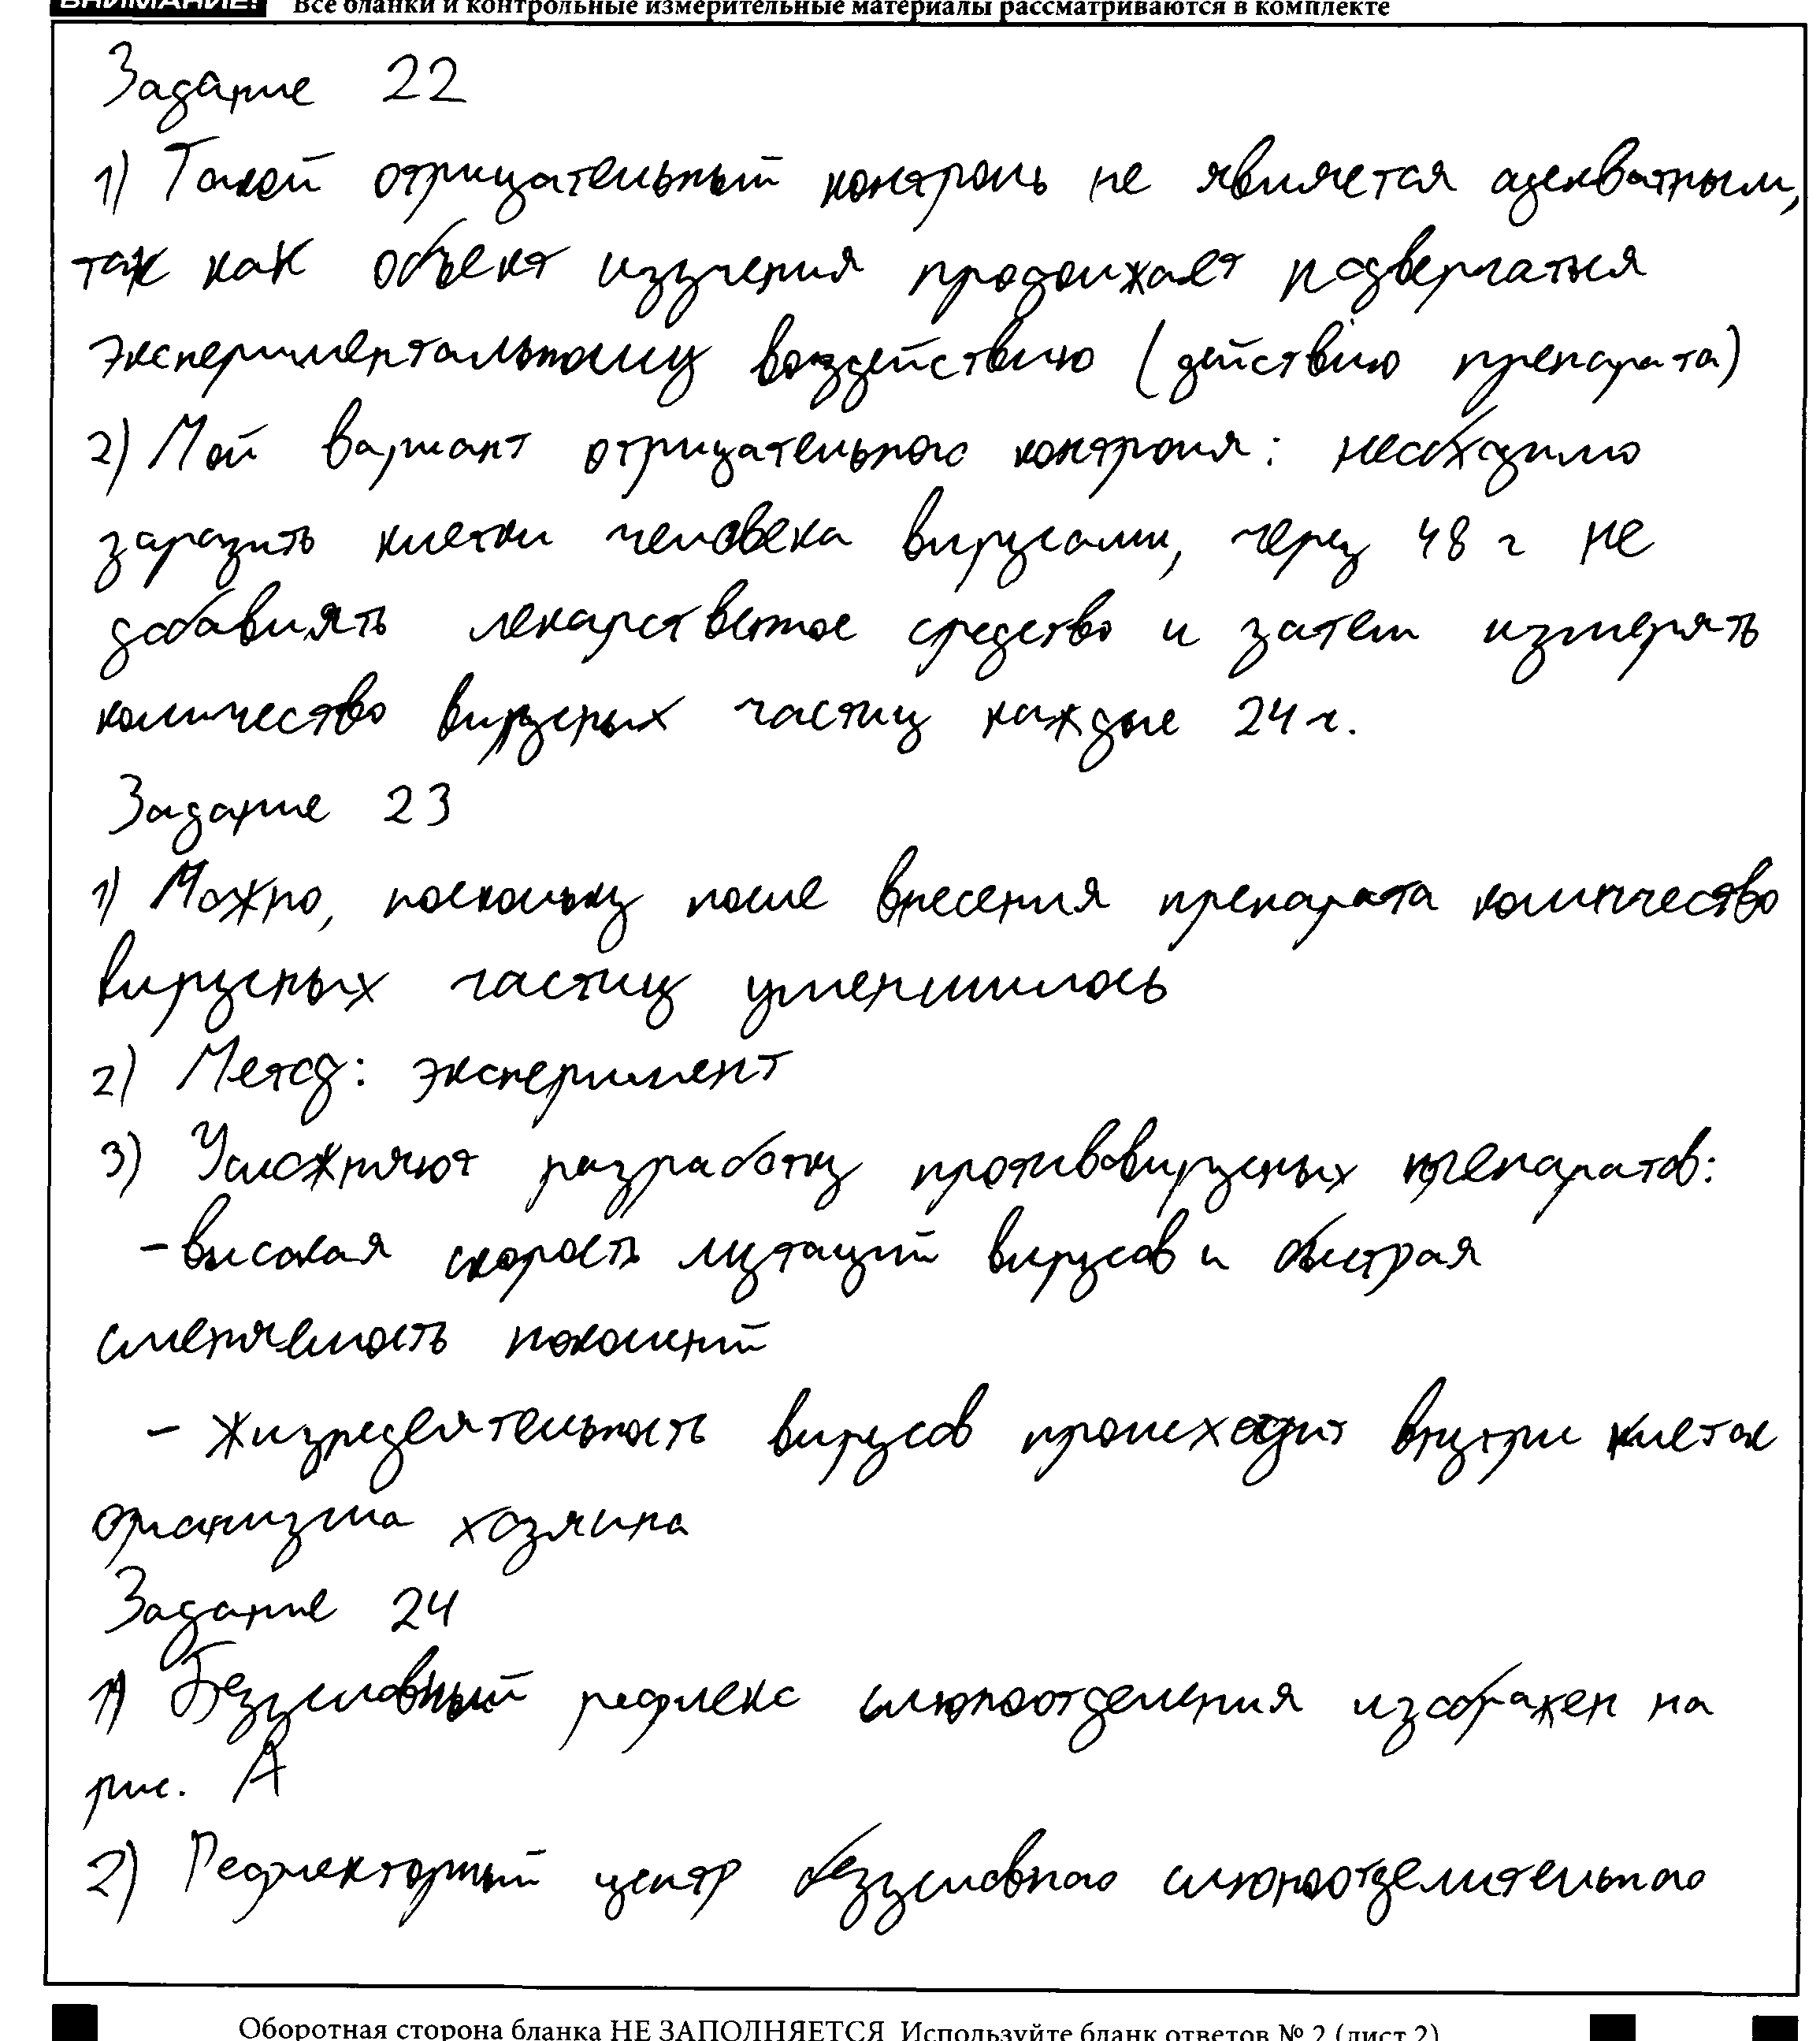 ВНИМАНИЕ! Все бланки и контрольные измерительные материалы рассматриваются в комплекте
Задание 22
1) Такой отрицательный контроль не является адекватным,
так как объект изучения продолжает подвергаться
экспериментальному воздействию (действию препарата)
2) Мой вариант отрицательного контроля: необходимо
заразить клетки человека вирусами, через 48 ч не
добавлять лекарственное средство и затем измерять
количество вирусных частиц каждые 24 ч.
Задание 23
1) Можно, поскольку после внесения препарата количество
вирусных частиц уменьшилось
2) Метод: эксперимент
3) Усложняют разработку противовирусных препаратов:
- высокая скорость мутаций вирусов и быстрая
сменяемость поколений
- жизнедеятельность вирусов происходит внутри клеток
организма хозяина
Задание 24
1) Безусловный рефлекс слюноотделения изображен на
рис. А
2) Рефлекторный центр безусловного слюноотделительного
Оборотная сторона бланка НЕ ЗАПОЛНЯЕТСЯ. Используйте бланк ответов № 2 (лист 2)